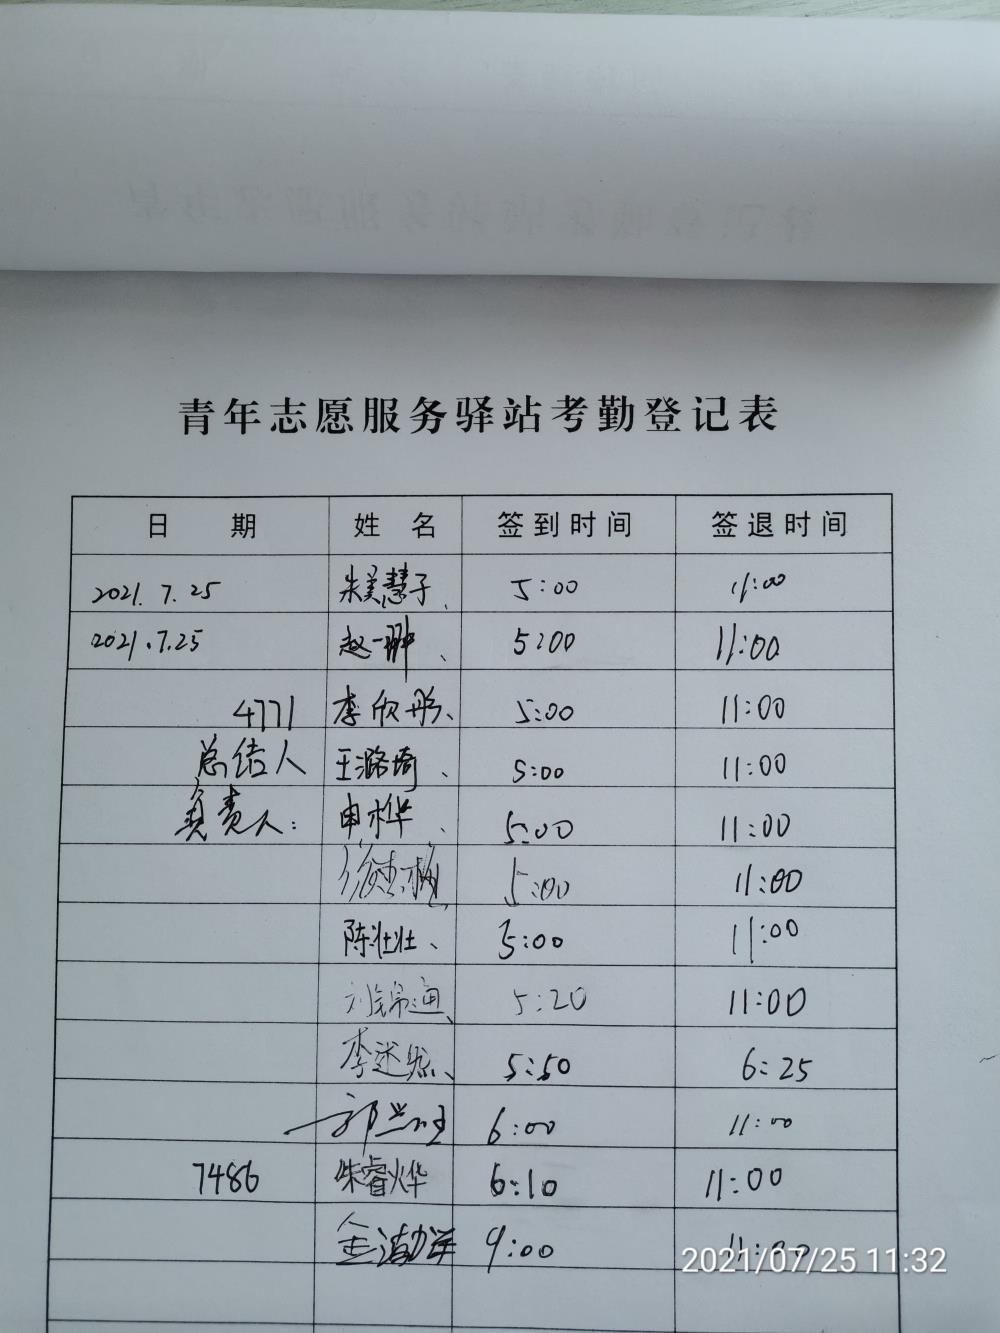 青年志愿服务驿站考勤登记表
日 期 姓 名 签到时间 签退时间
2021.7.25 朱美慧子、 5:00 11:00
2021.7.25 赵一翀、 5:00 11:00
4771 李欣彤、 5:00 11:00
总结人 王潞琦、 5:00 11:00
负责人: 申桦、 5:00 11:00
5:00 11:00
陈壮壮、 5:00 11:00
刘锦通、 5:20 11:00
5:50 6:25
郭兰旺 6:00 11:00
7486 朱睿烨 6:10 11:00
9:00 11:00
2021/07/25 11:32